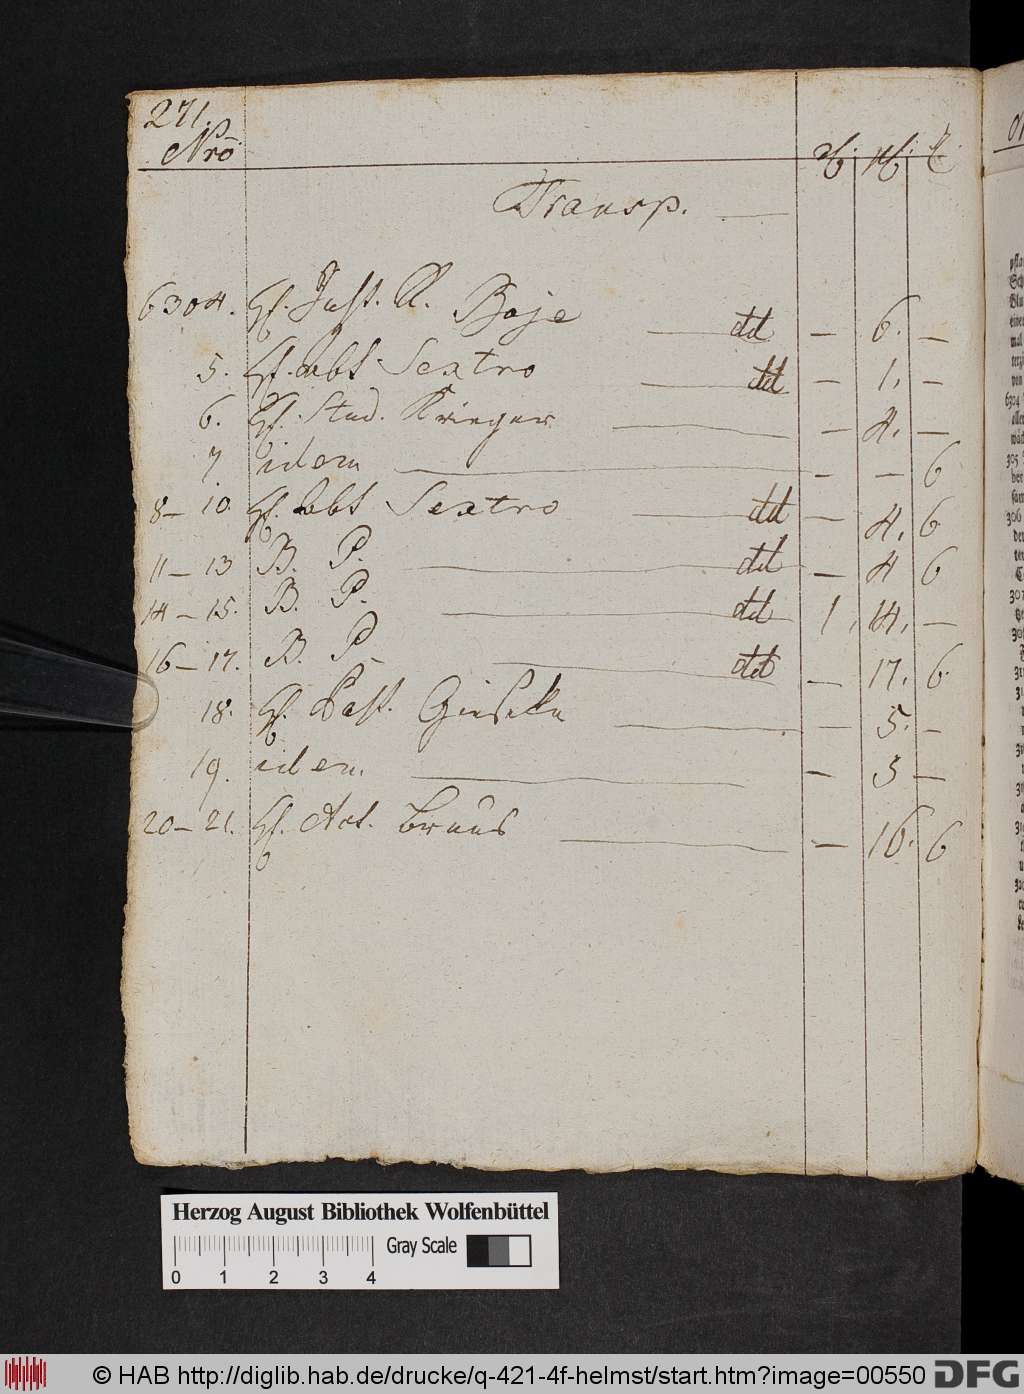 271.
Nrõ
Transp.
6304. H. Just. R. Boje dd — 6. —
5. H. Abt Sextro dd — 1. —
6. H. Stud. Krieger — 4. —
7 idem — — 6
8 — 10. H. Abt Sextro dd — 4. 6
11 — 13 B. P. dd — 4 6
14 — 15. B. P. dd 1, 14. —
16 — 17. B. P. dd — 17. 6
18. H. Past. Gieseke — 5. —
19. idem. — 5 —
20 — 21. H. Act. Bruns — 16. 6
Herzog August Bibliothek Wolfenbüttel
0 1 2 3 4 Gray Scale
© HAB http://diglib.hab.de/drucke/q-421-4f-helmst/start.htm?image=00550 DFG